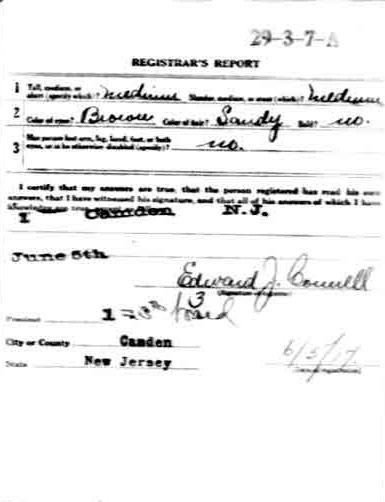 29-3-7-A
REGISTRAR'S REPORT
1 Tall, medium, or short (specify which)? medium Slender, medium, or stout (which)? medium
2 Color of eyes? Brown Color of hair? Sandy Bald? no.
3 Has person lost arm, leg, hand, foot, or both eyes, or is he otherwise disabled (specify)? no.
I certify that my answers are true, that the person registered has read his own
answers, that I have witnessed his signature, and that all of his answers of which I have
knowledge are true
1 Camden N.J.
June 5th
Edward J. Connell
(Signature of registrar)
3
Precinct 1 board
City or County Camden
State New Jersey
6/5/17.
(Date of registration)